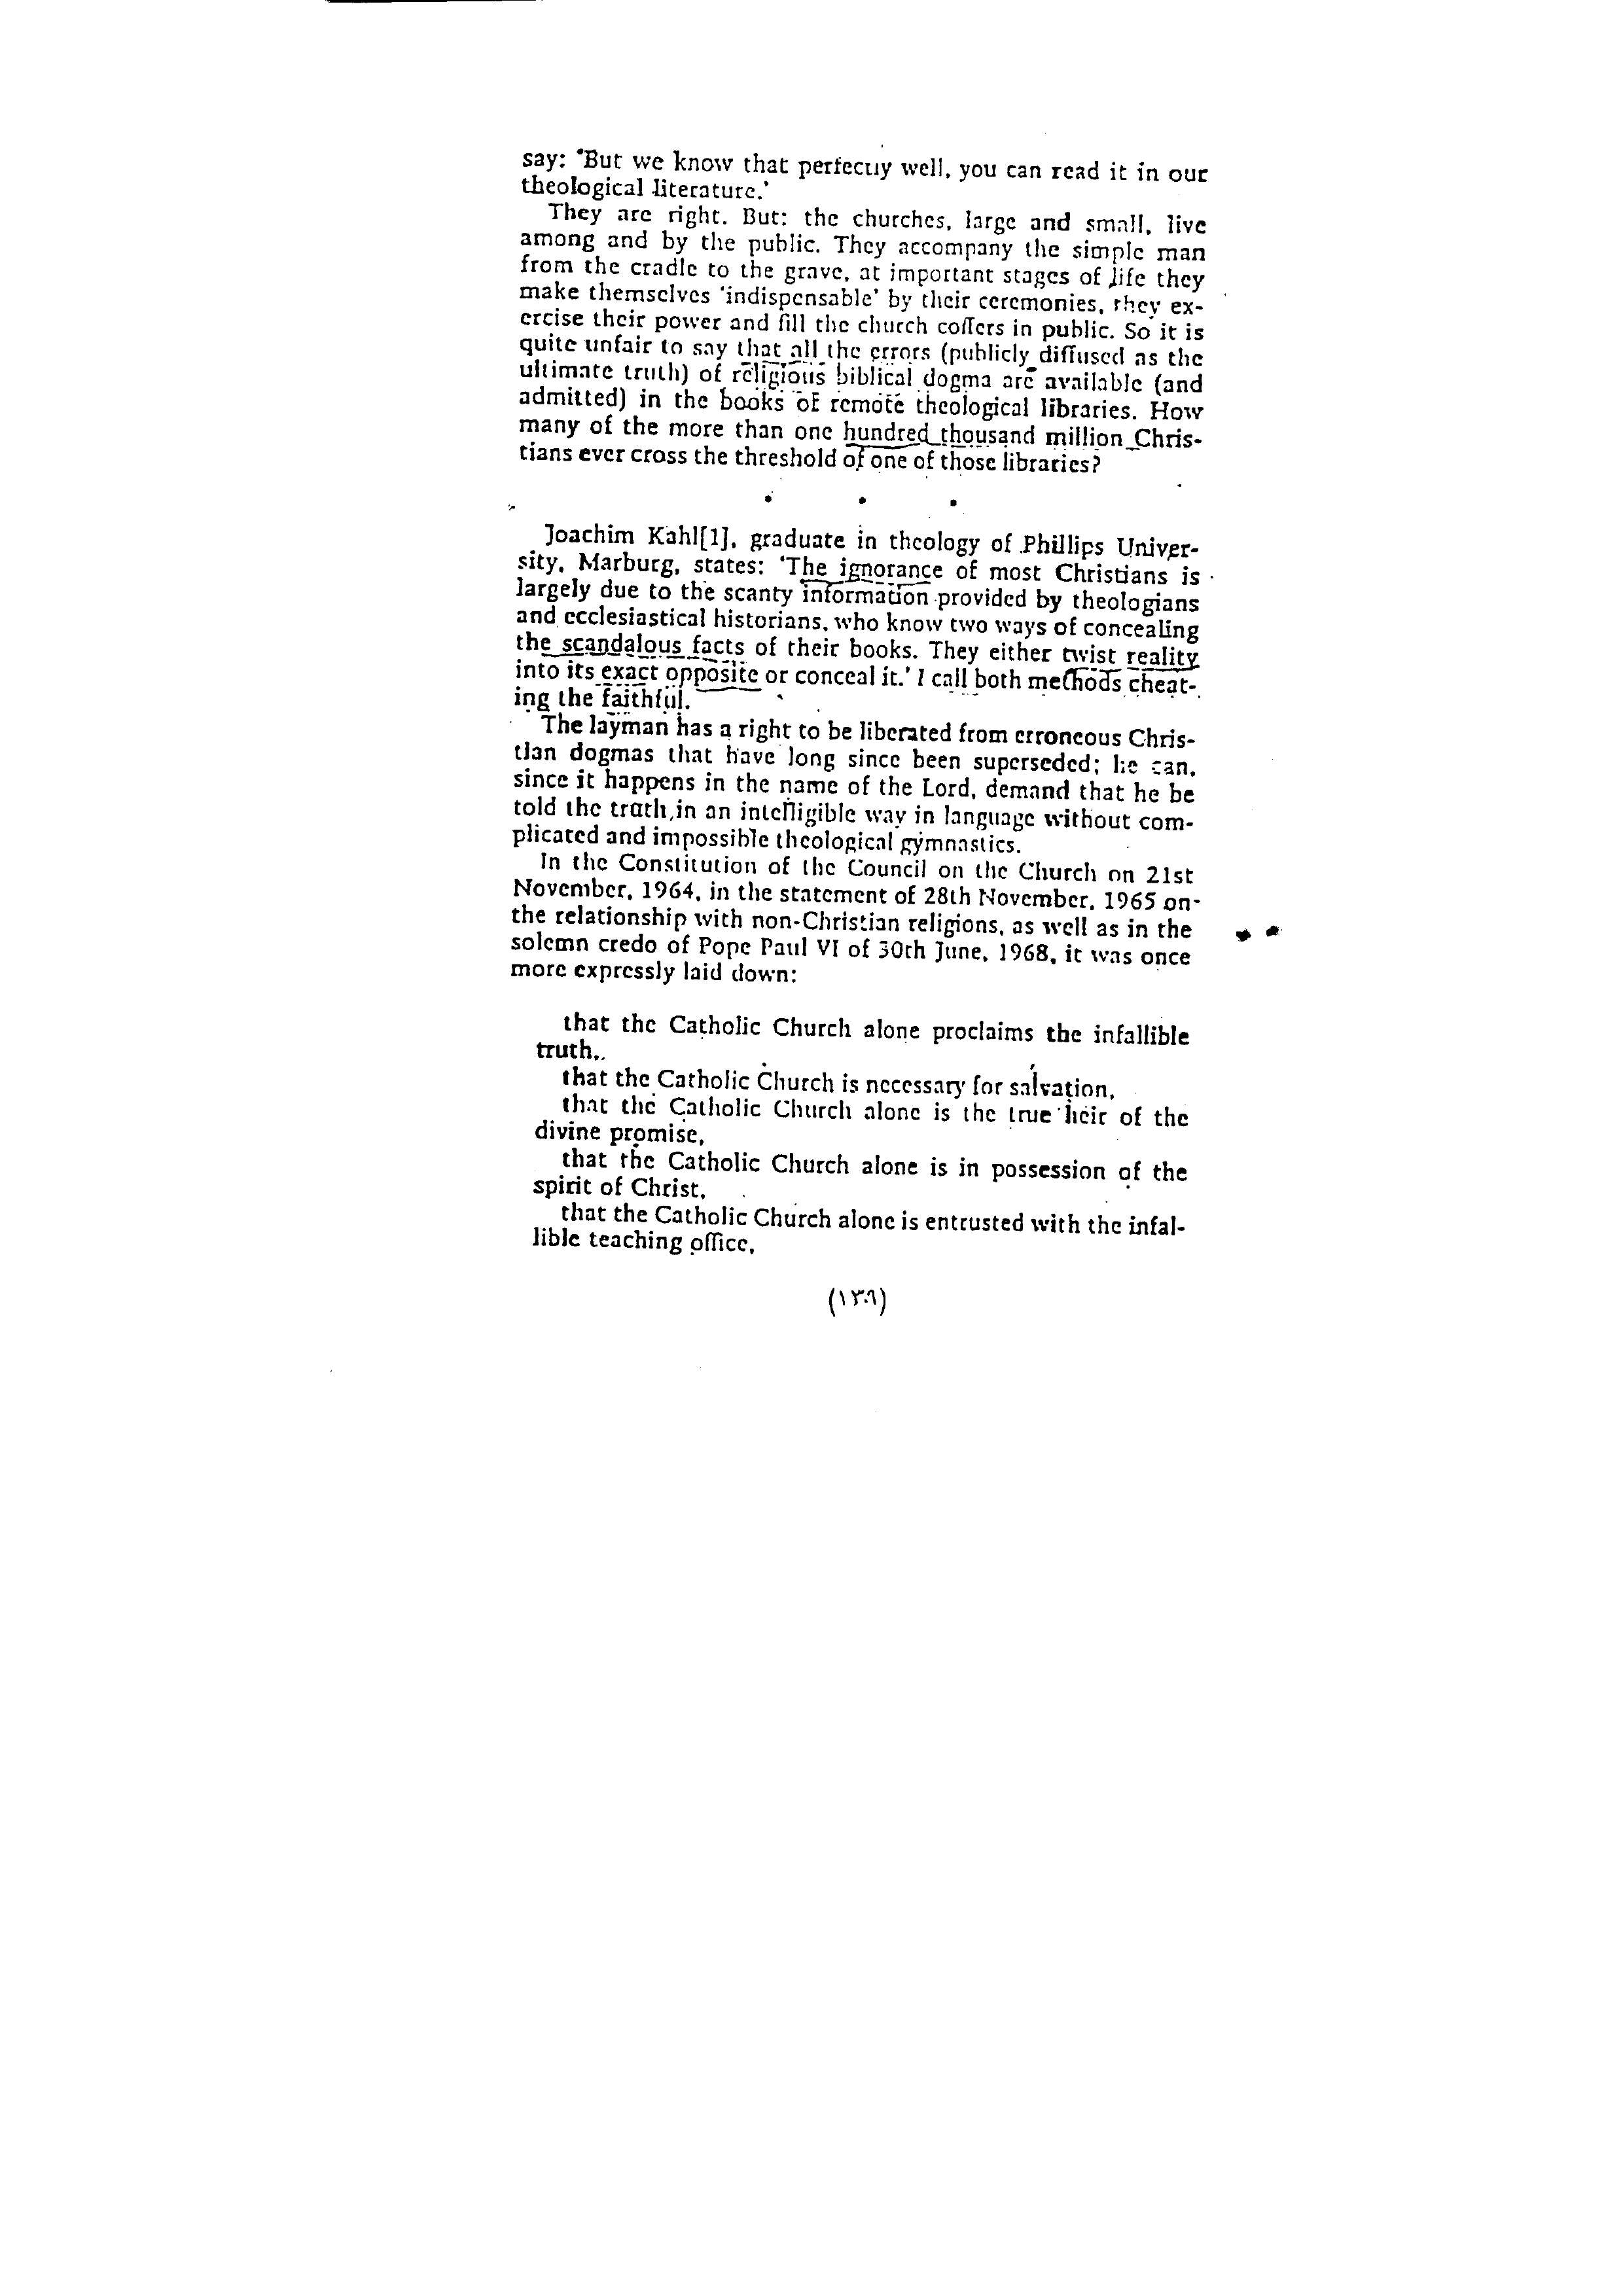 say: 'But we know that perfectly well, you can read it in our
theological literature.'
They are right. But: the churches, large and small, live
among and by the public. They accompany the simple man
from the cradle to the grave, at important stages of life they
make themselves 'indispensable' by their ceremonies, they ex-
ercise their power and fill the church coffers in public. So it is
quite unfair to say that all the errors (publicly diffused as the
ultimate truth) of religious biblical dogma are available (and
admitted) in the books of remote theological libraries. How
many of the more than one hundred thousand million Chris-
tians ever cross the threshold of one of those libraries?
• • •
Joachim Kahl[1], graduate in theology of Phillips Univer-
sity, Marburg, states: 'The ignorance of most Christians is
largely due to the scanty information provided by theologians
and ecclesiastical historians, who know two ways of concealing
the scandalous facts of their books. They either twist reality
into its exact opposite or conceal it.' I call both methods cheat-
ing the faithful.
The layman has a right to be liberated from erroneous Chris-
tian dogmas that have long since been superseded; he can,
since it happens in the name of the Lord, demand that he be
told the truth in an intelligible way in language without com-
plicated and impossible theological gymnastics.
In the Constitution of the Council on the Church on 21st
November, 1964, in the statement of 28th November, 1965 on
the relationship with non-Christian religions, as well as in the
solemn credo of Pope Paul VI of 30th June, 1968, it was once
more expressly laid down:
that the Catholic Church alone proclaims the infallible
truth,
that the Catholic Church is necessary for salvation,
that the Catholic Church alone is the true heir of the
divine promise,
that the Catholic Church alone is in possession of the
spirit of Christ,
that the Catholic Church alone is entrusted with the infal-
lible teaching office,